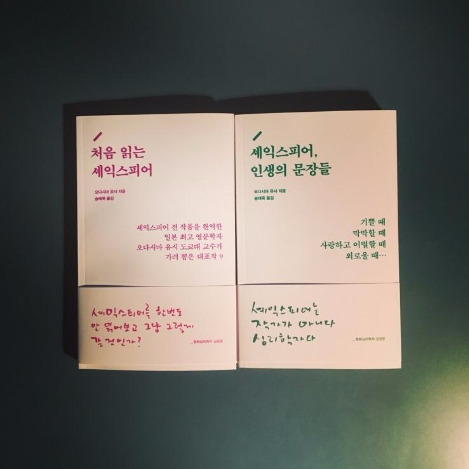 처음 읽는
셰익스피어
오다시마 유시 지음
송태욱 옮김
셰익스피어 전 작품을 완역한
일본 최고 영문학자
오다시마 유시 도쿄대 교수가
가려 뽑은 대표작 9
셰익스피어를 한번도
안 읽어보고 그냥 그렇게
갈 것인가?
셰익스피어,
인생의 문장들
오다시마 유시 지음
송태욱 옮김
기쁠 때
막막할 때
사랑하고 이별할 때
외로울 때…
셰익스피어는
작가가 아니다
심리학자다